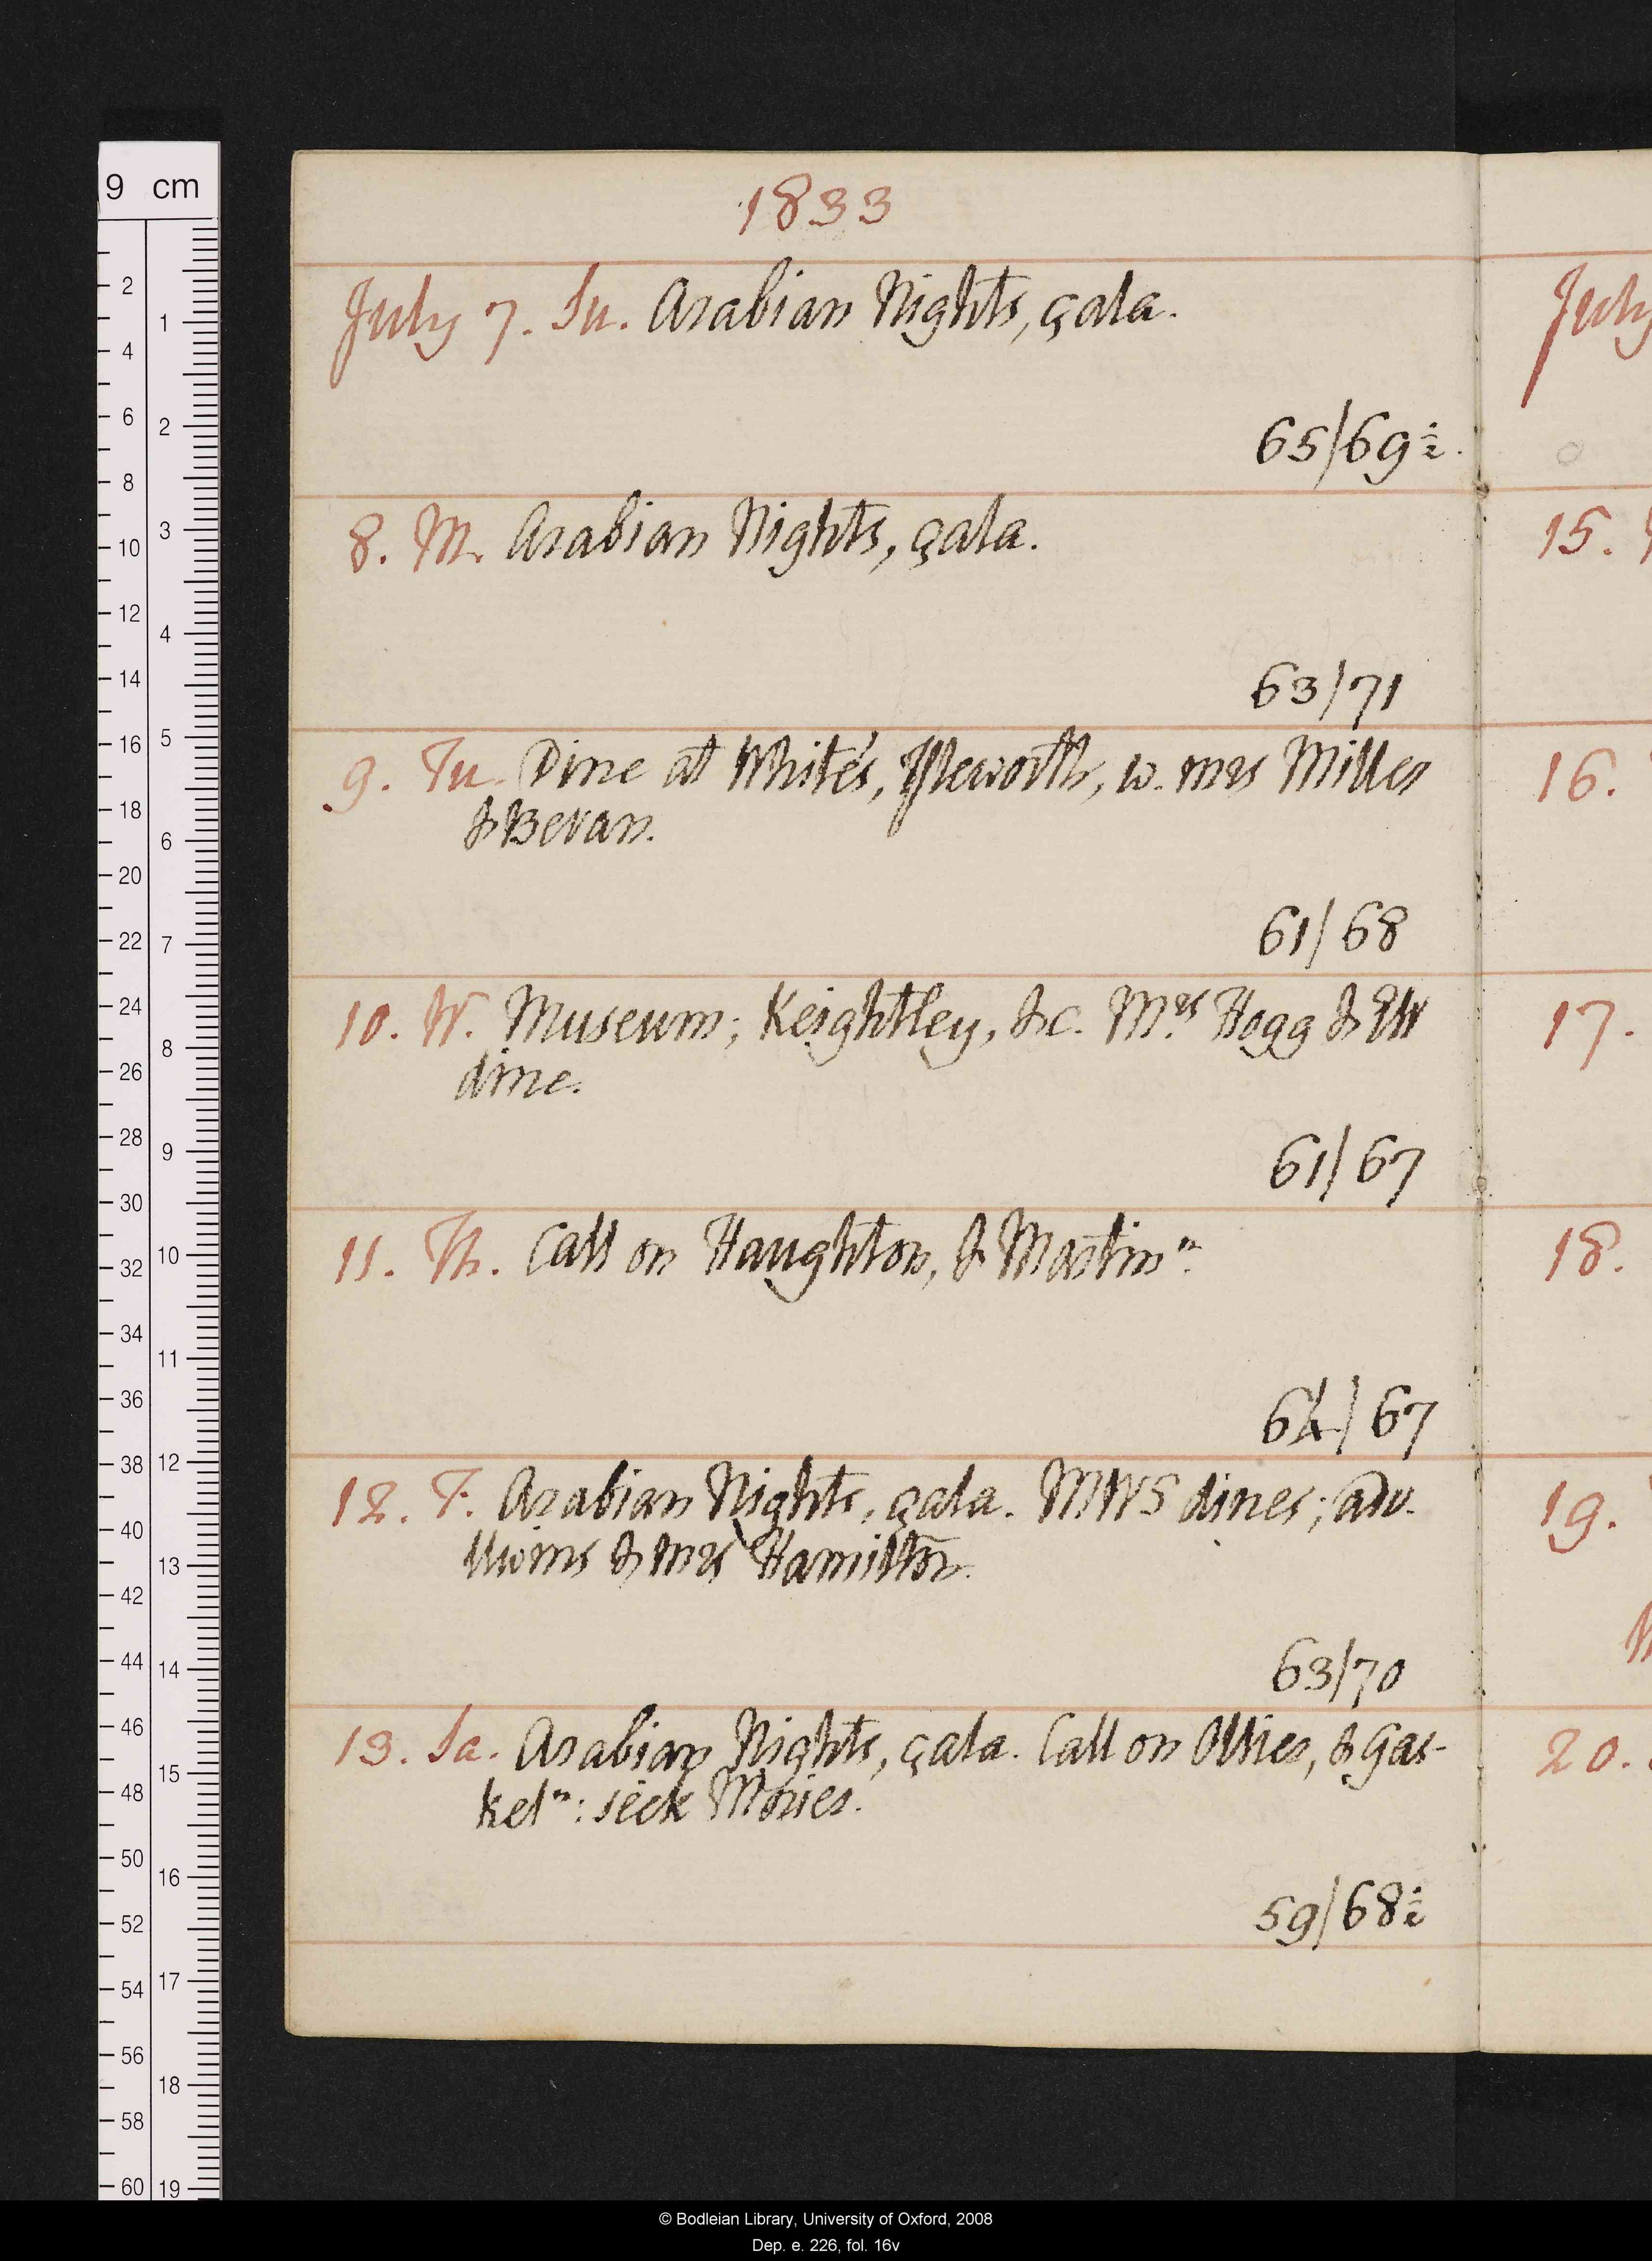 1833
July 7. Su. Arabian Nights, çala.
65/69½.
8. M. Arabian Nights, çala.
63/71
9. Tu. Dine at White's, Isleworth, w. Mrs Milles
& Bevan.
61/68
10. W. Museum; Keightley, &c. Mrs Hogg &
dine.
61/67
11. Th. Call on Haughton, & Martin n.
64/67
12. F. Arabian Nights, çala. MWS dines; adv.
& Mrs Hamilton.
63/70
13. Sa. Arabian Nights, çala. Call on Ollier, & Gas-
kel n: seek Mories.
59/68½
July
15.
16.
17.
18.
19.
20.
9 cm
2
4
6
8
10
12
14
16
18
20
22
24
26
28
30
32
34
36
38
40
42
44
46
48
50
52
54
56
58
60
1
2
3
4
5
6
7
8
9
10
11
12
13
14
15
16
17
18
19
© Bodleian Library, University of Oxford, 2008
Dep. e. 226, fol. 16v